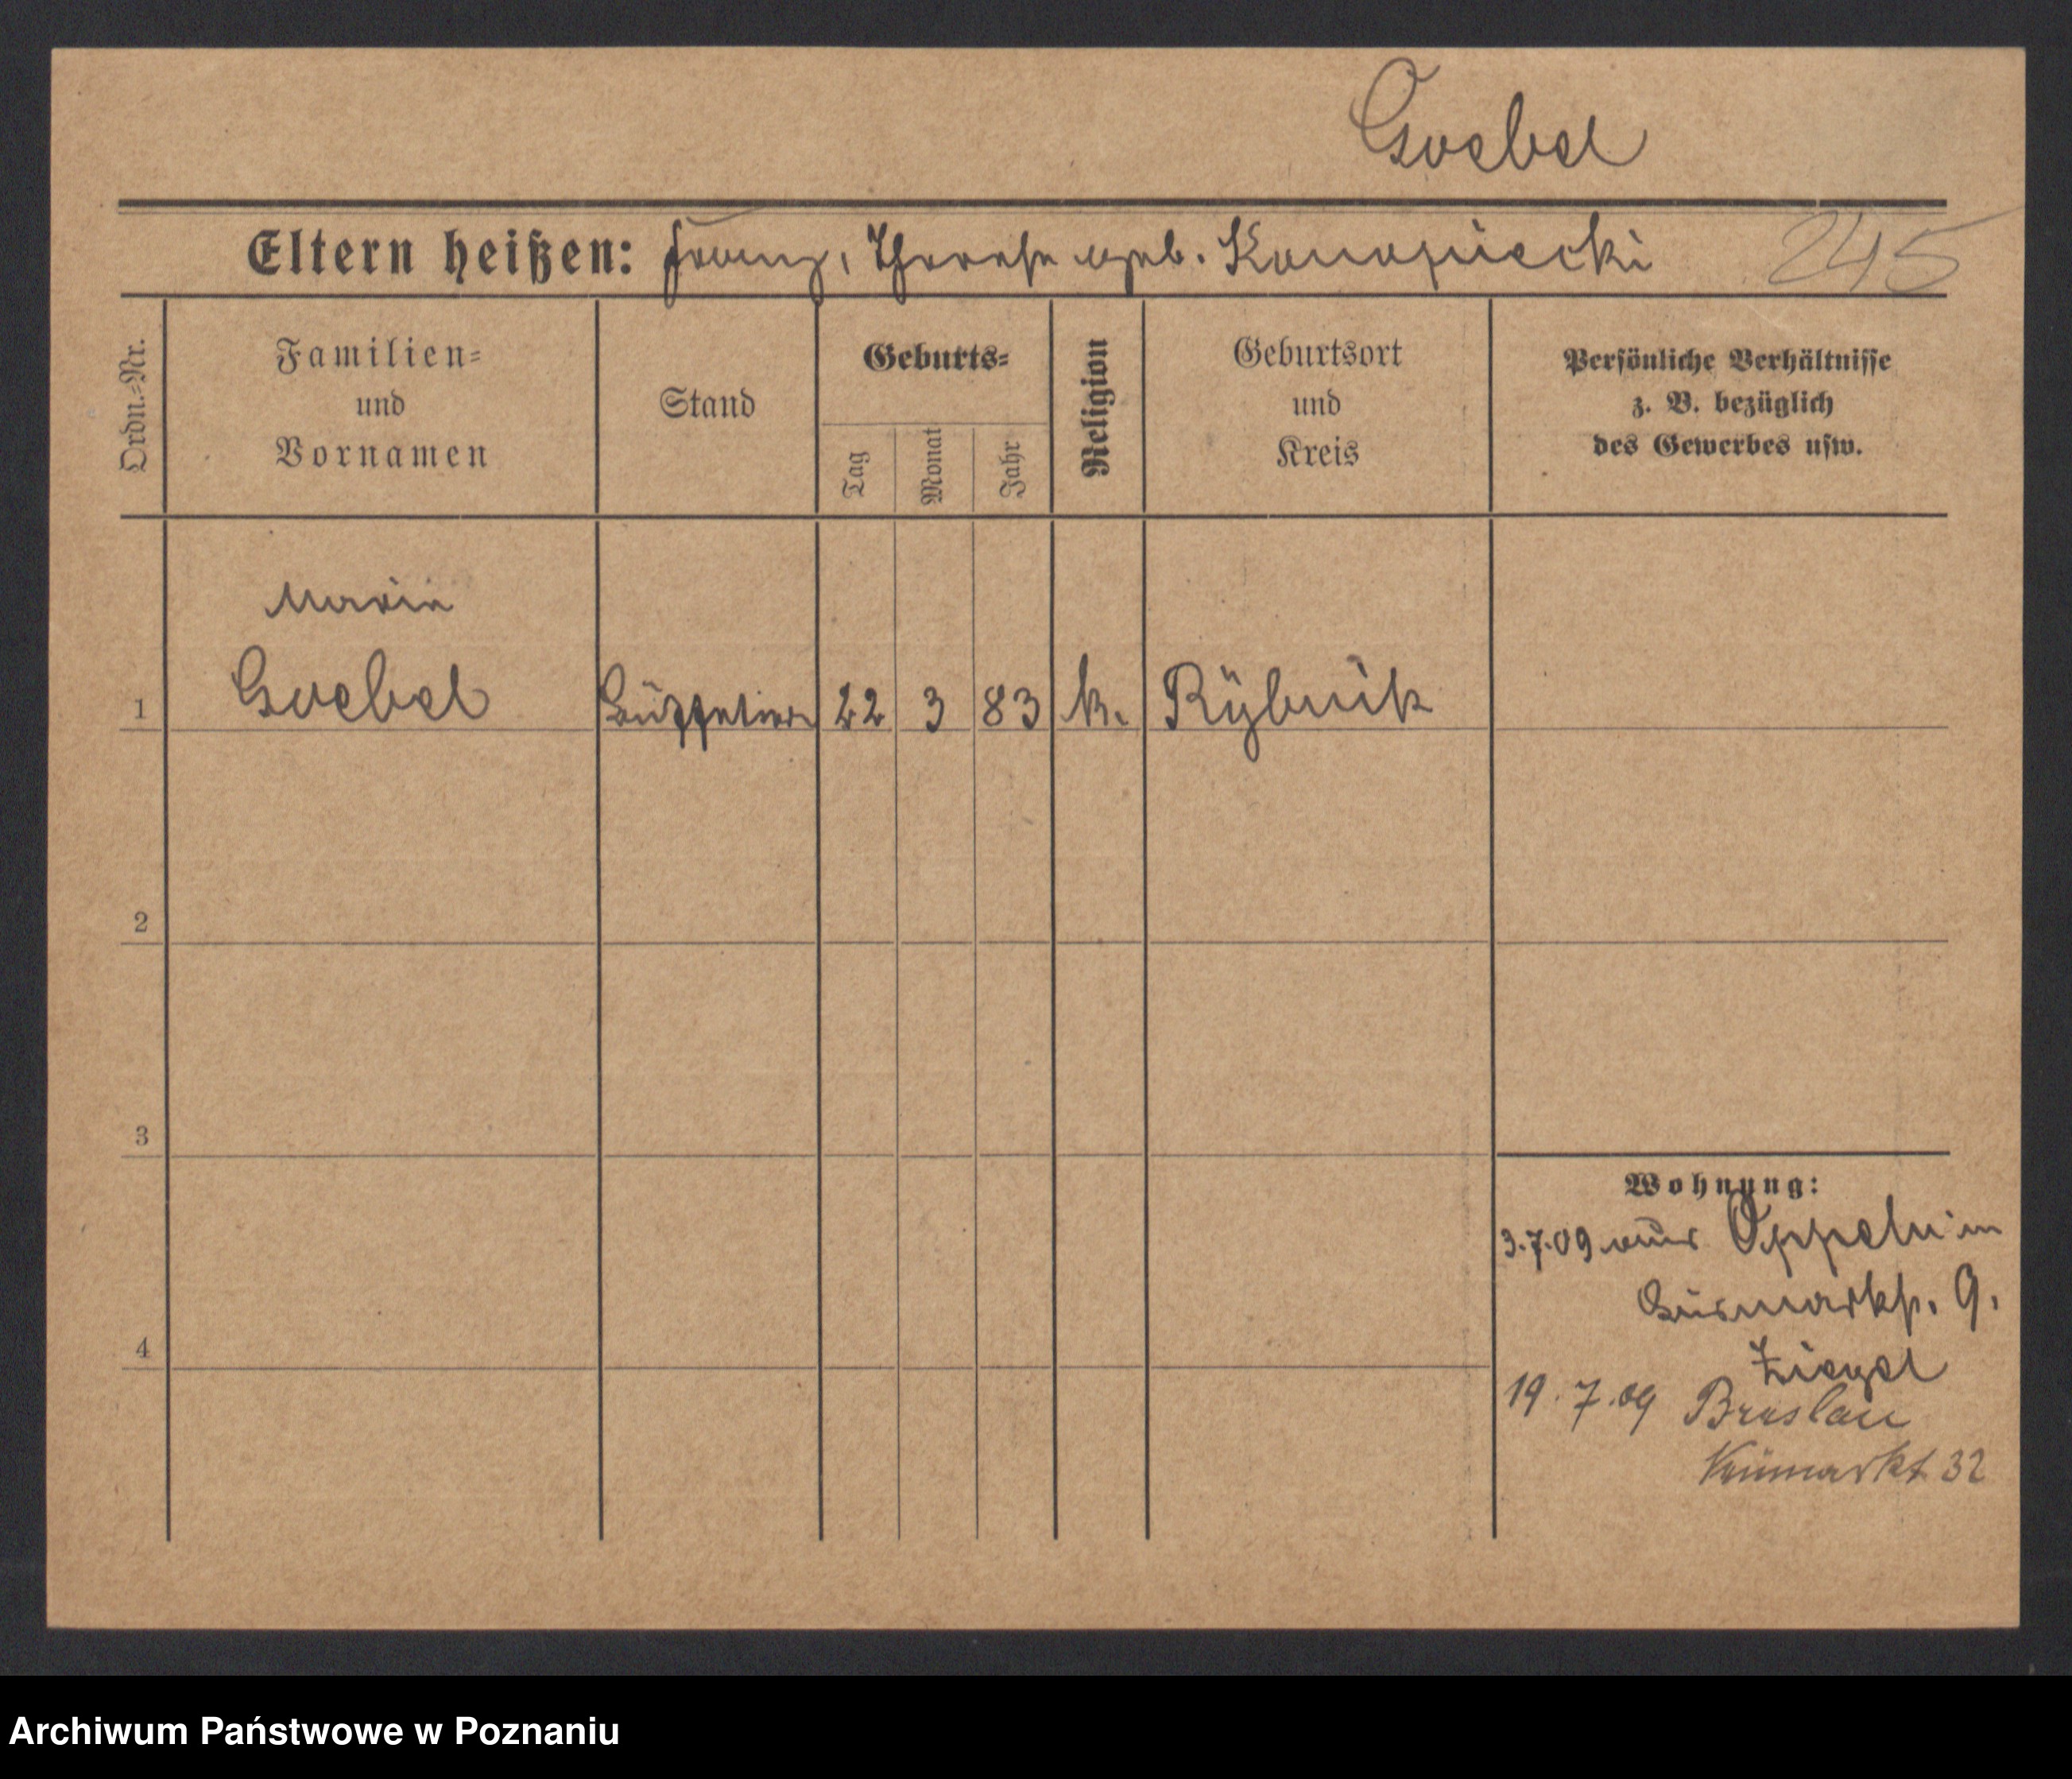 Goebel
Eltern heißen: Franz, Therese geb. Konopiecki 245
Ordn.=Nr.
Familien=
und
Vornamen
Stand
Geburts=
Tag
Monat
Jahr
Religion
Geburtsort
und
Kreis
Persönliche Verhältnisse
z. B. bezüglich
des Gewerbes usw.
Marie
1 Goebel 22 3 83 k. Rÿbnik
2
3
4
Wohnung:
3.7.09 aus Oppeln in
Bismarkst. 9.
Ziegel
19.7.09 Breslau
Neumarkt 32
Archiwum Państwowe w Poznaniu